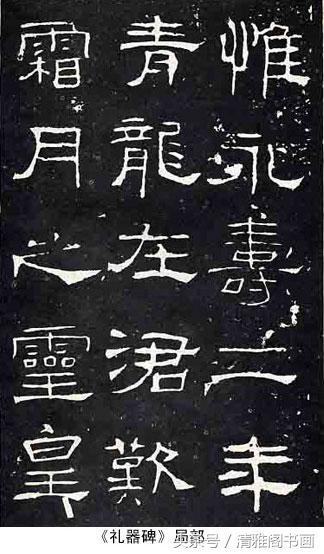 惟永壽二年
青龍在涒歎
霜月之靈皇
《礼器碑》局部
头条号／清雅阁书画